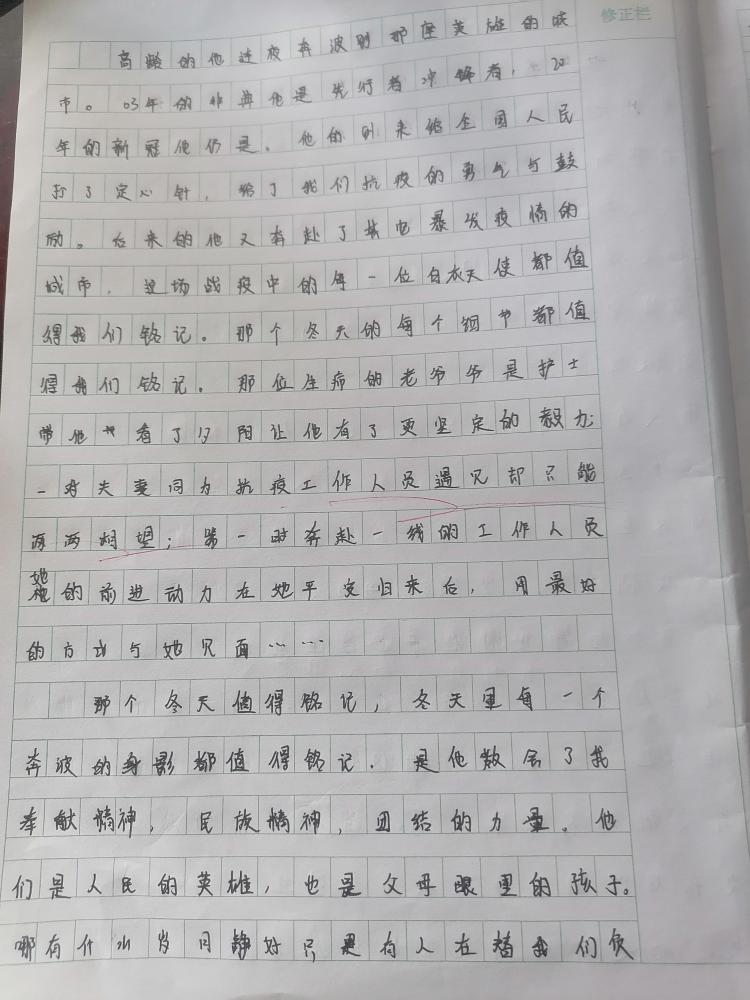 修正栏
高龄的他连夜奔波到那座英雄的城
市。03年的非典他是先行者冲锋者,20
年的新冠他仍是。他的到来给全国人民
打了定心针,给了我们抗疫的勇气与鼓
励。后来的他又奔赴了其他暴发疫情的
城市,这场战疫中的每一位白衣天使都值
得我们铭记。那个冬天的每个细节都值
得我们铭记。那位生病的老爷爷是护士
带他看了夕阳让他有了更坚定的毅力;
一对夫妻同为抗疫工作人员遇见却只能
两相望;第一时奔赴一线的工作人员
她的前进动力在她平安归来后,用最好
的方式与她见面……
那个冬天值得铭记,冬天里每一个
奔波的身影都值得铭记.是他教会了我
奉献精神,民族精神,团结的力量。他
们是人民的英雄,也是父母眼里的孩子。
哪有什么岁月静好只是有人在替我们负